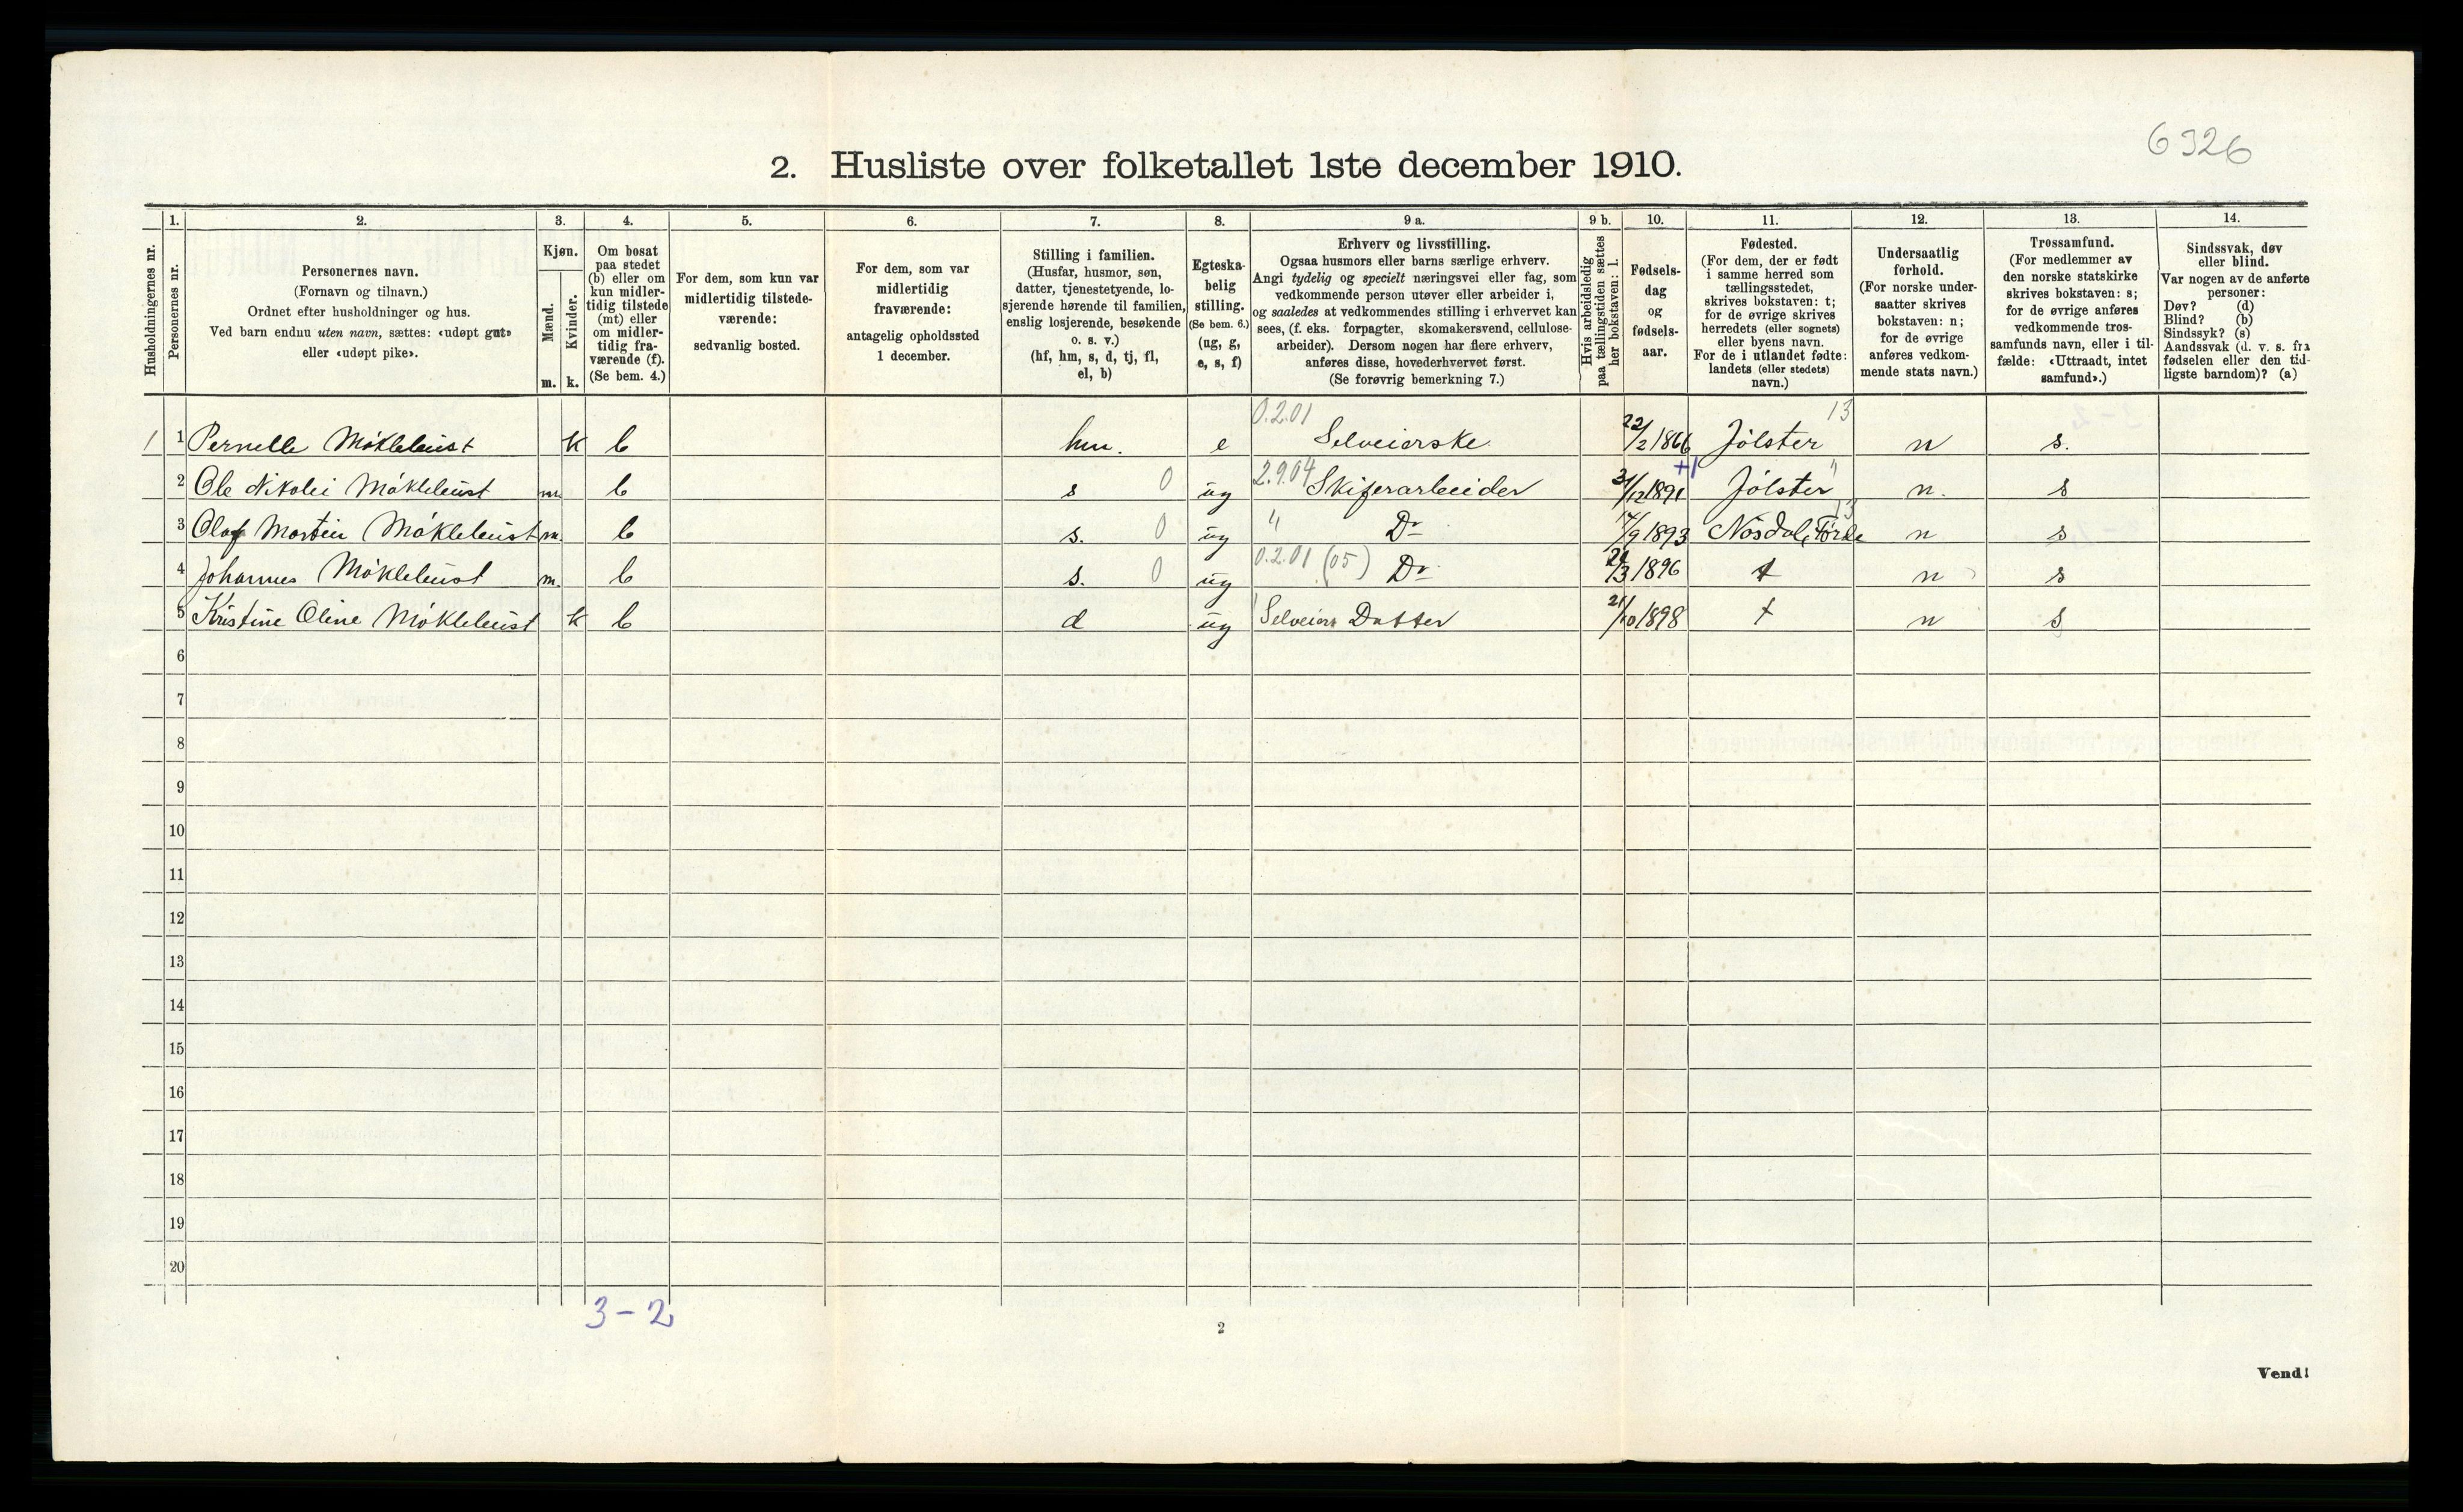 6326
2. Husliste over folketallet 1ste december 1910.
Husholdningernes nr.
1.
Personernes nr.
2.
Personernes navn.
(Fornavn og tilnavn.)
Ordnet efter husholdninger og hus.
Ved barn endnu uten navn, sættes: «udøpt gut»
eller «udøpt pike».
3.
Kjøn.
Mænd.
Kvinder.
m. k.
4.
Om bosat
paa stedet
(b) eller om
kun midler-
tidig tilstede
(mt) eller
om midler-
tidig fra-
værende (f).
(Se bem. 4.)
5.
For dem, som kun var
midlertidig tilstede-
værende:
sedvanlig bosted.
6.
For dem, som var
midlertidig
fraværende:
antagelig opholdssted
1 december.
7.
Stilling i familien.
(Husfar, husmor, søn,
datter, tjenestetyende, lo-
sjerende hørende til familien,
enslig losjerende, besøkende
o. s. v.)
(hf, hm, s, d, tj, fl,
el, b)
8.
Egteska-
belig
stilling.
(Se bem. 6.)
(ug, g,
e, s, f)
9 a.
Erhverv og livsstilling.
Ogsaa husmors eller barns særlige erhverv.
Angi tydelig og specielt næringsvei eller fag, som
vedkommende person utøver eller arbeider i,
og saaledes at vedkommendes stilling i erhvervet kan
sees, (f. eks. forpagter, skomakersvend, cellulose-
arbeider). Dersom nogen har flere erhverv,
anføres disse, hovederhvervet først.
(Se forøvrig bemerkning 7.)
9 b.
Hvis arbeidsledig
paa tællingstiden sættes
her bokstaven: l.
10.
Fødsels-
dag
og
fødsels-
aar.
11.
Fødested.
(For dem, der er født
i samme herred som
tællingsstedet,
skrives bokstaven: t;
for de øvrige skrives
herredets (eller sognets)
eller byens navn.
For de i utlandet fødte:
landets (eller stedets)
navn.)
12.
Undersaatlig
forhold.
(For norske under-
saatter skrives
bokstaven: n;
for de øvrige
anføres vedkom-
mende stats navn.)
13.
Trossamfund.
(For medlemmer av
den norske statskirke
skrives bokstaven: s;
for de øvrige anføres
vedkommende tros-
samfunds navn, eller i til-
fælde: «Uttraadt, intet
samfund».)
14.
Sindssvak, døv
eller blind.
Var nogen av de anførte
personer:
Døv? (d)
Blind? (b)
Sindssyk? (s)
Aandssvak (d. v. s. fra
fødselen eller den tid-
ligste barndom)? (a)
0.2.01 13
1 1 Pernelle Möklebust k b hm. e Selveierske 22/2 1866 Jölster n s.
+1
2 Ole Nikolei Möklebust m. b s 0 ug 2.9.04 Skiferarbeider 31/12 1891 Jölster " n. s
3 Olaf Martin Möklebust m. b s. 0 ug " Do 14/9 1893 Nösdal, Förde 13 n s
4 Johannes Möklebust m. b s. 0 ug 0.2.01 (05) Do 21/3 1896 t n s
5 Kristine Oline Möklebust k b d ug Selveiers Datter 21/10 1898 t n s
6
7
8
9
10
11
12
13
14
15
16
17
18
19
20
3-2
2
Vend!